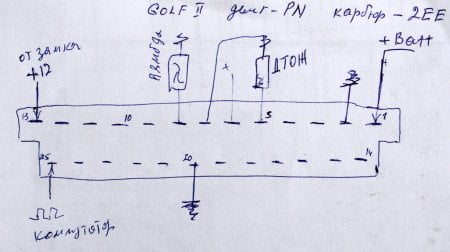 GOLF II двиг-PN карбюр-2EE
+Batt
от замка
+12
лямбда
х
ДТОЖ
13
10
5
1
25
20
14
коммутатор